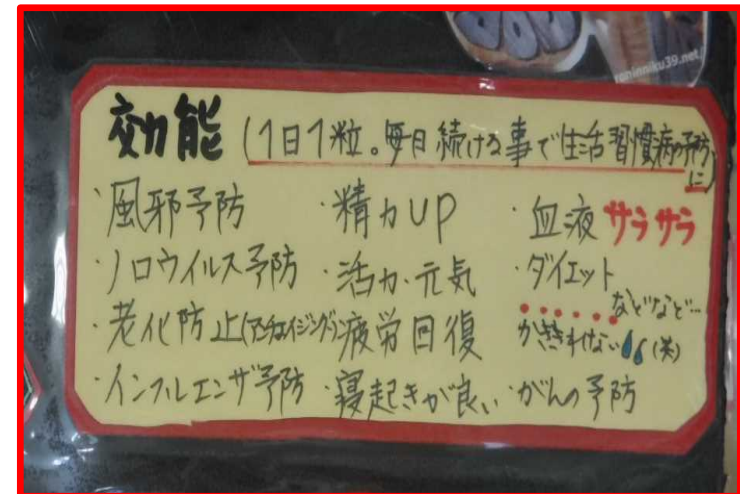 効能(1日1粒。毎日続ける事で生活習慣病の予防に)
・風邪予防
・ノロウイルス予防
・老化防止(アンチエイジング)
・インフルエンザ予防
・精力UP
・活力・元気
・疲労回復
・寝起きが良い
・血液サラサラ
・ダイエット
・・・・・・などなど…
かききれない(笑)
・がんの予防
roninniku39.net/